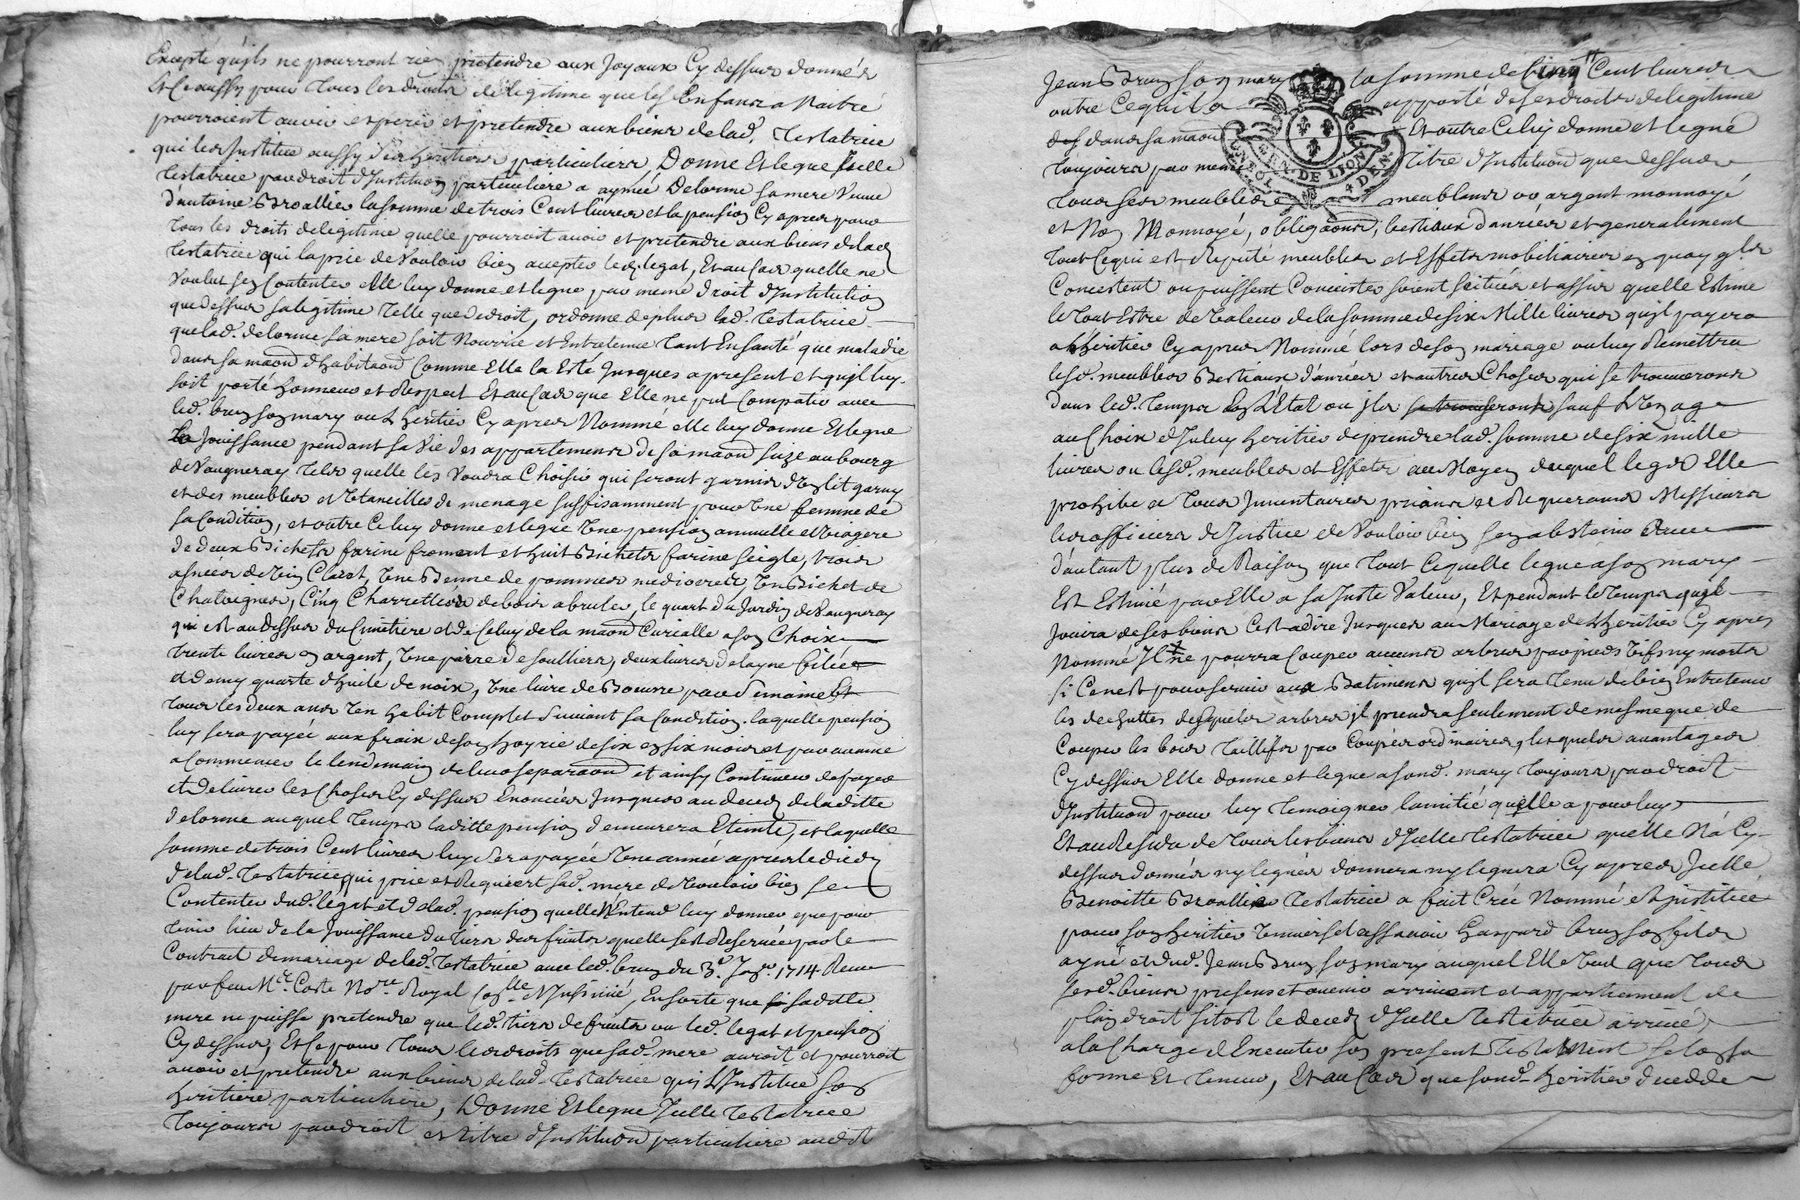 Excepte quils ne pourront rien pretendre aux Joyaux Cy dessus donnés
Et Ce aussy pour Tous les droits de legitime que les Enfans a Naitre
pourroient avoir esperer et pretendre aux biens de lad. Testatrice
qui les Institue aussy ses heritiers particuliers, Donne Et legue Jcelle
Testatrice par droit d'Instituon particuliere a aymée Delorme sa mere Veuve
d'antoine Broallier la somme de trois Cent livres et la pension Cy apres pour
Tous les droits de legitime quelle pourroit avoir et pretendre aux biens de lad.
Testatrice qui la prie de Vouloir bien accepter led. legat, Et au Cas quelle ne
Voulut sen Contenter elle luy donne et legue par meme droit d'Institution
que dessus sa legitime Telle que de droit, ordonne de plus lad. Testatrice
que lad. delorme sa mere soit Nourrie et Entretenue Tant En santé que maladie
dans sa maon d'habitaon Comme Elle la Esté Jusques a present et quil luy
soit porté honneur et Respect Et au Cas que Elle ne put Compatir avec
led. brun son mary ou L'heritier Cy apres Nommé elle luy donne Et legue
la Jouissance pendant sa Vie des appartemens de sa maon size au bourg
de Vaugneray Tels quelle les Voudra Choisir qui seront garnis d'un lit garny
et des meubles et Utancilles de menage suffisamment pour Une femme de
sa Condition, et outre Ce luy donne et legue Une pension annuelle et Viagere
de deux Bichets farine froment et huit Bichets farine seigle, trois
asnées de Vin Clairet, Une Benne de pommes mediocres Un Bichet de
Chataignes, Cinq Charretées de bois a bruler, le quart du Jardin de Vaugneray
qui est au dessus du Cimetiere et de Celuy de la maon Curialle a son Choix
trente livres en argent, Une paire de soulliers, deux livres de layne filée
et demy quarte d'huile de noix, Une livre de Beurre par Semaine Et
Tous les deux ans Un habit Complet suivant sa Condition. laquelle pension
luy sera payée aux fraix de son hoyrie de six en six mois et par avance
a Commencer le lendemain de leur separaon et ainsy Continuer de payer
et delivrer les Choses Cy dessus Enoncées Jusques au deced de laditte
delorme auquel Temps laditte pension demeurera Eteinte, et laquelle
somme de trois Cent livres luy sera payée Une année apres le deced
de lad. Testatrice qui prie et Requiert sad. mere de Vouloir bien se
Contenter dud. legat et de lad. pension quelle N'Entend luy donner que pour
Tenir lieu de la Jouissance du Tiers des fruits quelle sest Reservée par le
Contrat de mariage de lad. Testatrice avec led. brun du 3e. Janr. 1714 Receu
par feu Me. Coste Nore. Royal En sorte que sa ditte
mere ne puisse pretendre que led. tiers de fruits ou led. legat et pension
Cy dessus, Et Ce pour Tous les droits que sad. mere auroit et pourroit
avoir et pretendre aux biens de lad. Testatrice qui L'Institue son
heritiere particuliere, Donne Et legue Jcelle Testatrice
Toujours par droit et titre d'Instituon particuliere audit
Jean Brun son mary la somme de Cinq Cent livres
outre Ce quil a apporté de ses droits de legitime
dans sa maon Et outre Ce luy donne et legue
Toujours par meme titre d'Instituon que dessus
Tous ses meubles meublans or argent monnoyé
et Non Monnoyé, obligaons, bestiaux danrées et generalement
Tout Ce qui est Reputé meubles et Effets mobiliaires en quoy qls
Concistent ou puissent Concister soient scitués et assis quelle Estime
le Tout Estre de Valeur de la somme de six Mille livres quil payera
a L'heritier Cy apres Nommé lors de son mariage ou luy Remettra
lesd. meubles Bestiaux d'anrées et autres Choses qui se trouveront
dans led. Temps En L'Etat ou Jls sauf L'Uzage
au Choix d'Jceluy heritier de prendre lad. somme de six mille
livres ou lesd. meubles et Effets au Moyen duquel legs Elle
prohibe a Tous Inventaires priant et Requerant Messieurs
les officiers de Justice de Vouloir bien sen abstenir Avec
d'autant plus de Raison que Tout Ce quelle legue a son mary
Est Estimé par Elle a sa Juste Valeur, Et pendant le Temps quil
Jouira de ses biens Cest a dire Jusques au Mariage de L'heritier Cy apres
Nommé Jl ne pourra Couper aucuns arbres par pieds Vifs ny morts
si Ce nest pour servir aux Batimens quil sera Tenu de bien Entretenir
les dechuttes desquels arbres il prendra seulement de mesme que de
Couper les bois Taillifs par Coupes ordinaires, lesquels avantages
Cy dessus Elle donne et legue a sond. mary Toujours par droit
d'Instituon pour luy Temoigner lamitié quelle a pour luy
Et au Residu de Tous les biens d'Jcelle Testatrice quelle N'a Cy
dessus donnés ny legués donnera ny leguera Cy apres Jcelle
Benoitte Broallier Testatrice a fait Créé Nommé et Institué
pour son heritier Universel assavoir Gaspard brun son fils
ayné et dud. Jean Brun son mary auquel Elle Veut que Tous
sesd. biens presens et avenir arrivent et appartiennent de
plein droit sitost le deced d'Jcelle Testatrice arrivé,
a la Charge d'Executer son present Testament selon sa
forme Et Teneur, Et au Cas que sond. heritier decedde